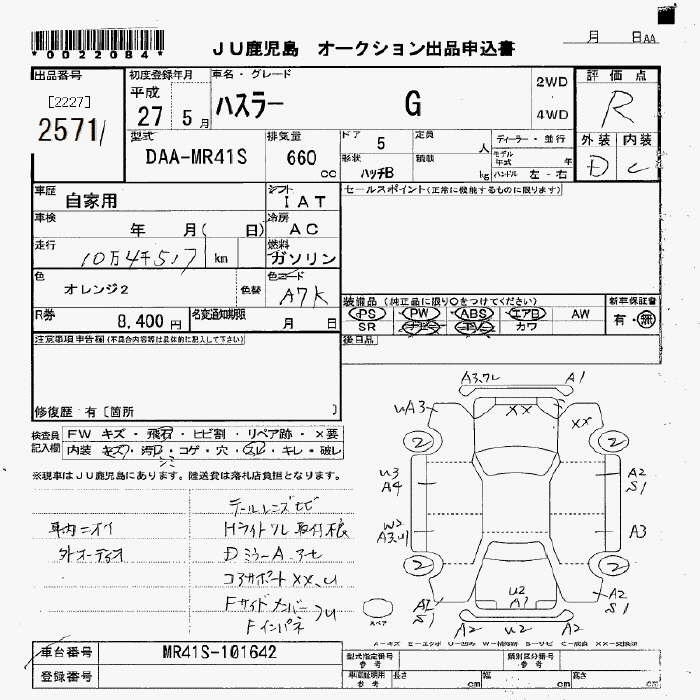 *0022084*
JU鹿児島 オークション出品申込書
月 日 AA
出品番号
[2227]
2571
初度登録年月
平成
27 5 月
車名・グレード
ハスラー G
2WD
4WD
評価点
R
外装 内装
D C
型式
DAA-MR41S
排気量
660 cc
ドア 5
定員 人
ディーラー・並行
モデル年式 年
形状 ハッチB
積載 kg
ハンドル 左 - 右
車歴 自家用
シフト IAT
セールスポイント(正常に機能するものに限ります)
車検 年 月( 日)
冷房 AC
走行 10万4千517 km
燃料 ガソリン
色 オレンジ2
色替
色コード A7K
装備品(純正品に限り○をつけてください)
新車保証書
PS PW ABS エアB AW
有・無
SR ナビ TV カワ
R券 8,400 円
名変通知期限 月 日
注意事項申告欄(不具合内容等は具体的に記入して下さい)
後日品
修復歴 有〔箇所 〕
検査員記入欄
FW キズ・飛石・ヒビ割・リペア跡・×要
内装 キズ・汚レ・コゲ・穴・スレ・キレ・破レ
シミ
※現車はJU鹿児島にあります。陸送費は落札店負担となります。
テールレンズヒビ
車内ニオイ
Hライトツル 取付不良
外オーディオ
DミラーA
コアサポートXX、U
Fサイドメンバー
Fインパネ
A3.ワレ A1
UA3 XX XX
2 2
U3 A4
A2 S1
W3
A3
2 2
U2 A1
A2 S1
A2 S1
A2 U2 A2
スペア
A=キズ E=エクボ U=凹み W=補修跡 S=サビ C=腐食 XX=交換済
車台番号 MR41S-101642
登録番号
型式指定番号 参考
類別区分番号 参考
車庫証明用 参考
長さ cm
幅 cm
高さ cm